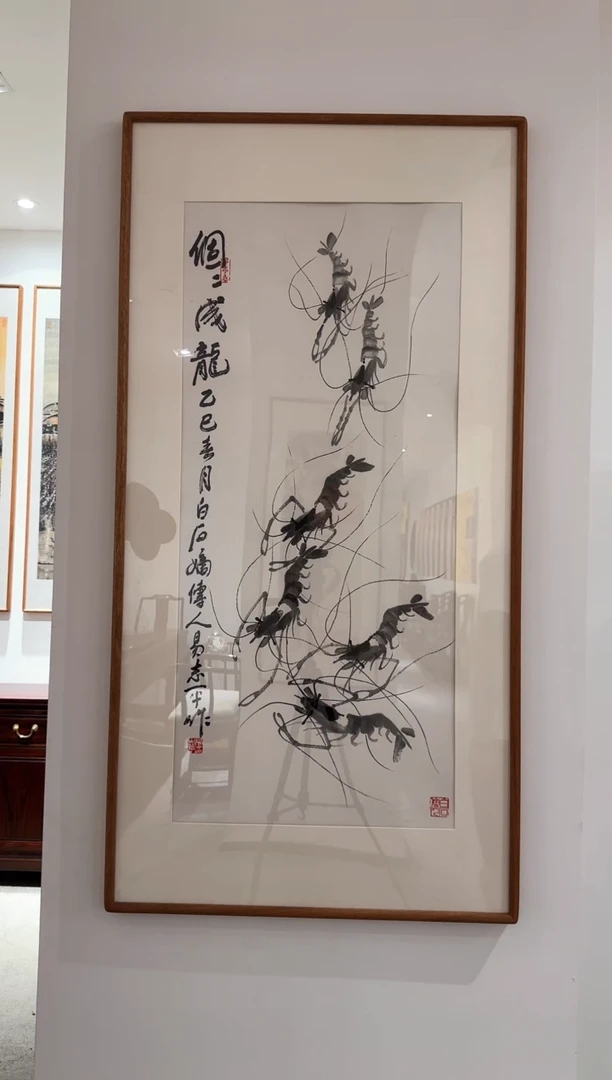 個〻成龍乙巳春月白石嫡傳人易志平作